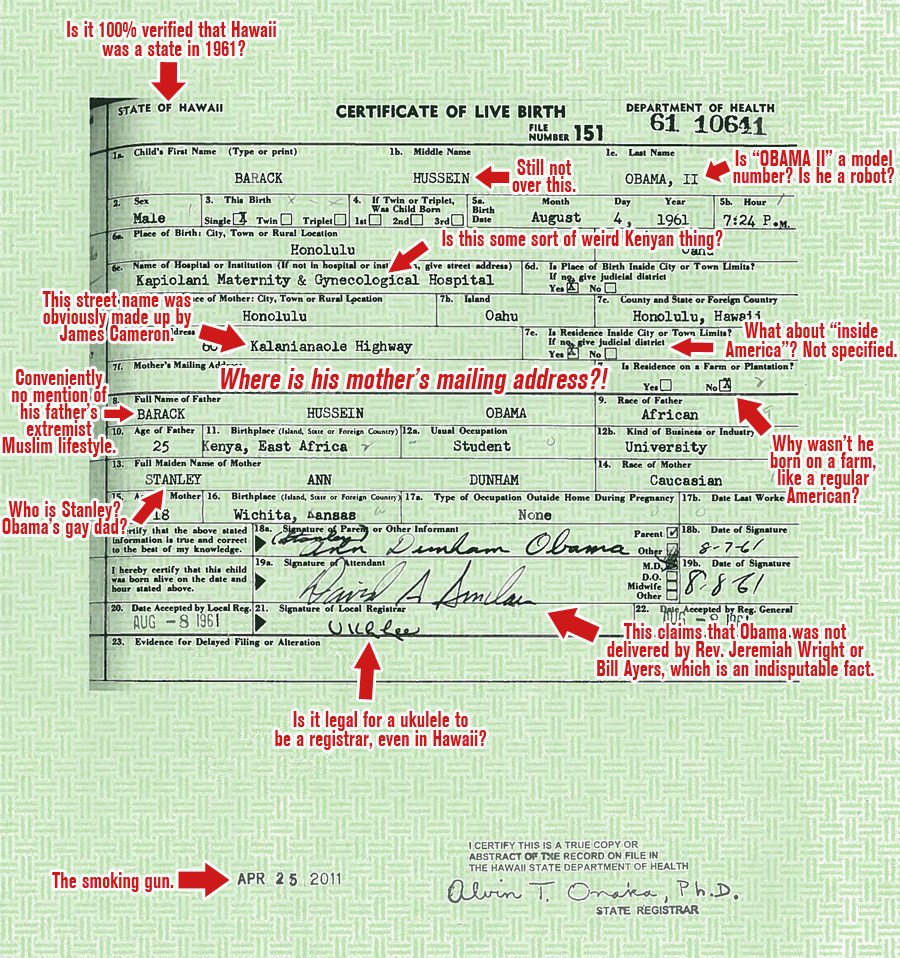 Is it 100% verified that Hawaii
was a state in 1961?
STATE OF HAWAII
CERTIFICATE OF LIVE BIRTH
DEPARTMENT OF HEALTH
FILE NUMBER 151
61 10641
1a. Child's First Name (Type or print) 1b. Middle Name 1c. Last Name
BARACK HUSSEIN OBAMA, II
Still not
over this.
Is "OBAMA II" a model
number? Is he a robot?
2. Sex 3. This Birth 4. If Twin or Triplet, Was Child Born 5a. Birth Date Month Day Year 5b. Hour
Male Single X Twin Triplet 1st 2nd 3rd August 4, 1961 7:24 P.M.
6a. Place of Birth: City, Town or Rural Location
Honolulu
Is this some sort of weird Kenyan thing?
6c. Name of Hospital or Institution (If not in hospital or , give street address) 6d. Is Place of Birth Inside City or Town Limits?
If no, give judicial district
Kapiolani Maternity & Gynecological Hospital Yes X No
This street name was
obviously made up by
James Cameron.
of Mother: City, Town or Rural Location 7b. Island 7c. County and State or Foreign Country
Honolulu Oahu Honolulu, Hawaii
7e. Is Residence Inside City or Town Limits?
If no, give judicial district
Kalanianaole Highway Yes X No
What about "inside
America"? Not specified.
7f. Mother's Mailing
Where is his mother's mailing address?!
Is Residence on a Farm or Plantation?
Yes No X
Conveniently
no mention of
his father's
extremist
Muslim lifestyle.
8. Full Name of Father 9. Race of Father
BARACK HUSSEIN OBAMA African
10. Age of Father 11. Birthplace (Island, State or Foreign Country) 12a. Usual Occupation 12b. Kind of Business or Industry
25 Kenya, East Africa Student University
Why wasn't he
born on a farm,
like a regular
American?
13. Full Maiden Name of Mother 14. Race of Mother
STANLEY ANN DUNHAM Caucasian
Who is Stanley?
Obama's gay dad?
15. Mother 16. Birthplace (Island, State or Foreign Country) 17a. Type of Occupation Outside Home During Pregnancy 17b. Date Last Worke
18 Wichita, Kansas None
certify that the above stated
information is true and correct
to the best of my knowledge.
18a. Signature of Parent or Other Informant Parent 18b. Date of Signature
(Stanley) Ann Dunham Obama Other 8-7-61
I hereby certify that this child
was born alive on the date and
hour stated above.
19a. Signature of Attendant M.D. 19b. Date of Signature
David A Sinclair D.O. 8-8-61
Midwife
Other
20. Date Accepted by Local Reg. 21. Signature of Local Registrar 22. Date Accepted by Reg. General
AUG -8 1961 AUG - 8 1961
23. Evidence for Delayed Filing or Alteration
This claims that Obama was not
delivered by Rev. Jeremiah Wright or
Bill Ayers, which is an indisputable fact.
Is it legal for a ukulele to
be a registrar, even in Hawaii?
The smoking gun.
APR 25 2011
I CERTIFY THIS IS A TRUE COPY OR
ABSTRACT OF TXE RECORD ON FILE IN
THE HAWAII STATE DEPARTMENT OF HEALTH
Alvin T. Onaka, Ph.D.
STATE REGISTRAR